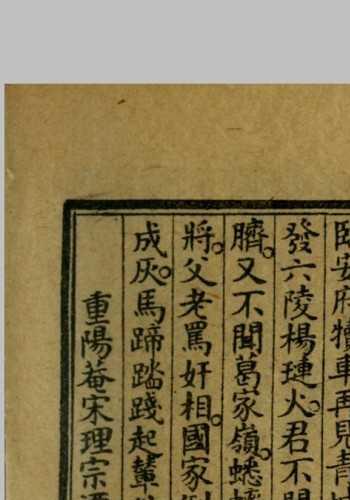 臨安府犢車再見青
發六陵楊璉火。君不
臍。又不聞葛家嶺。蟋
將。父老罵奸相。國家
成灰。馬蹄踏踐起輦
重陽菴宋理宗